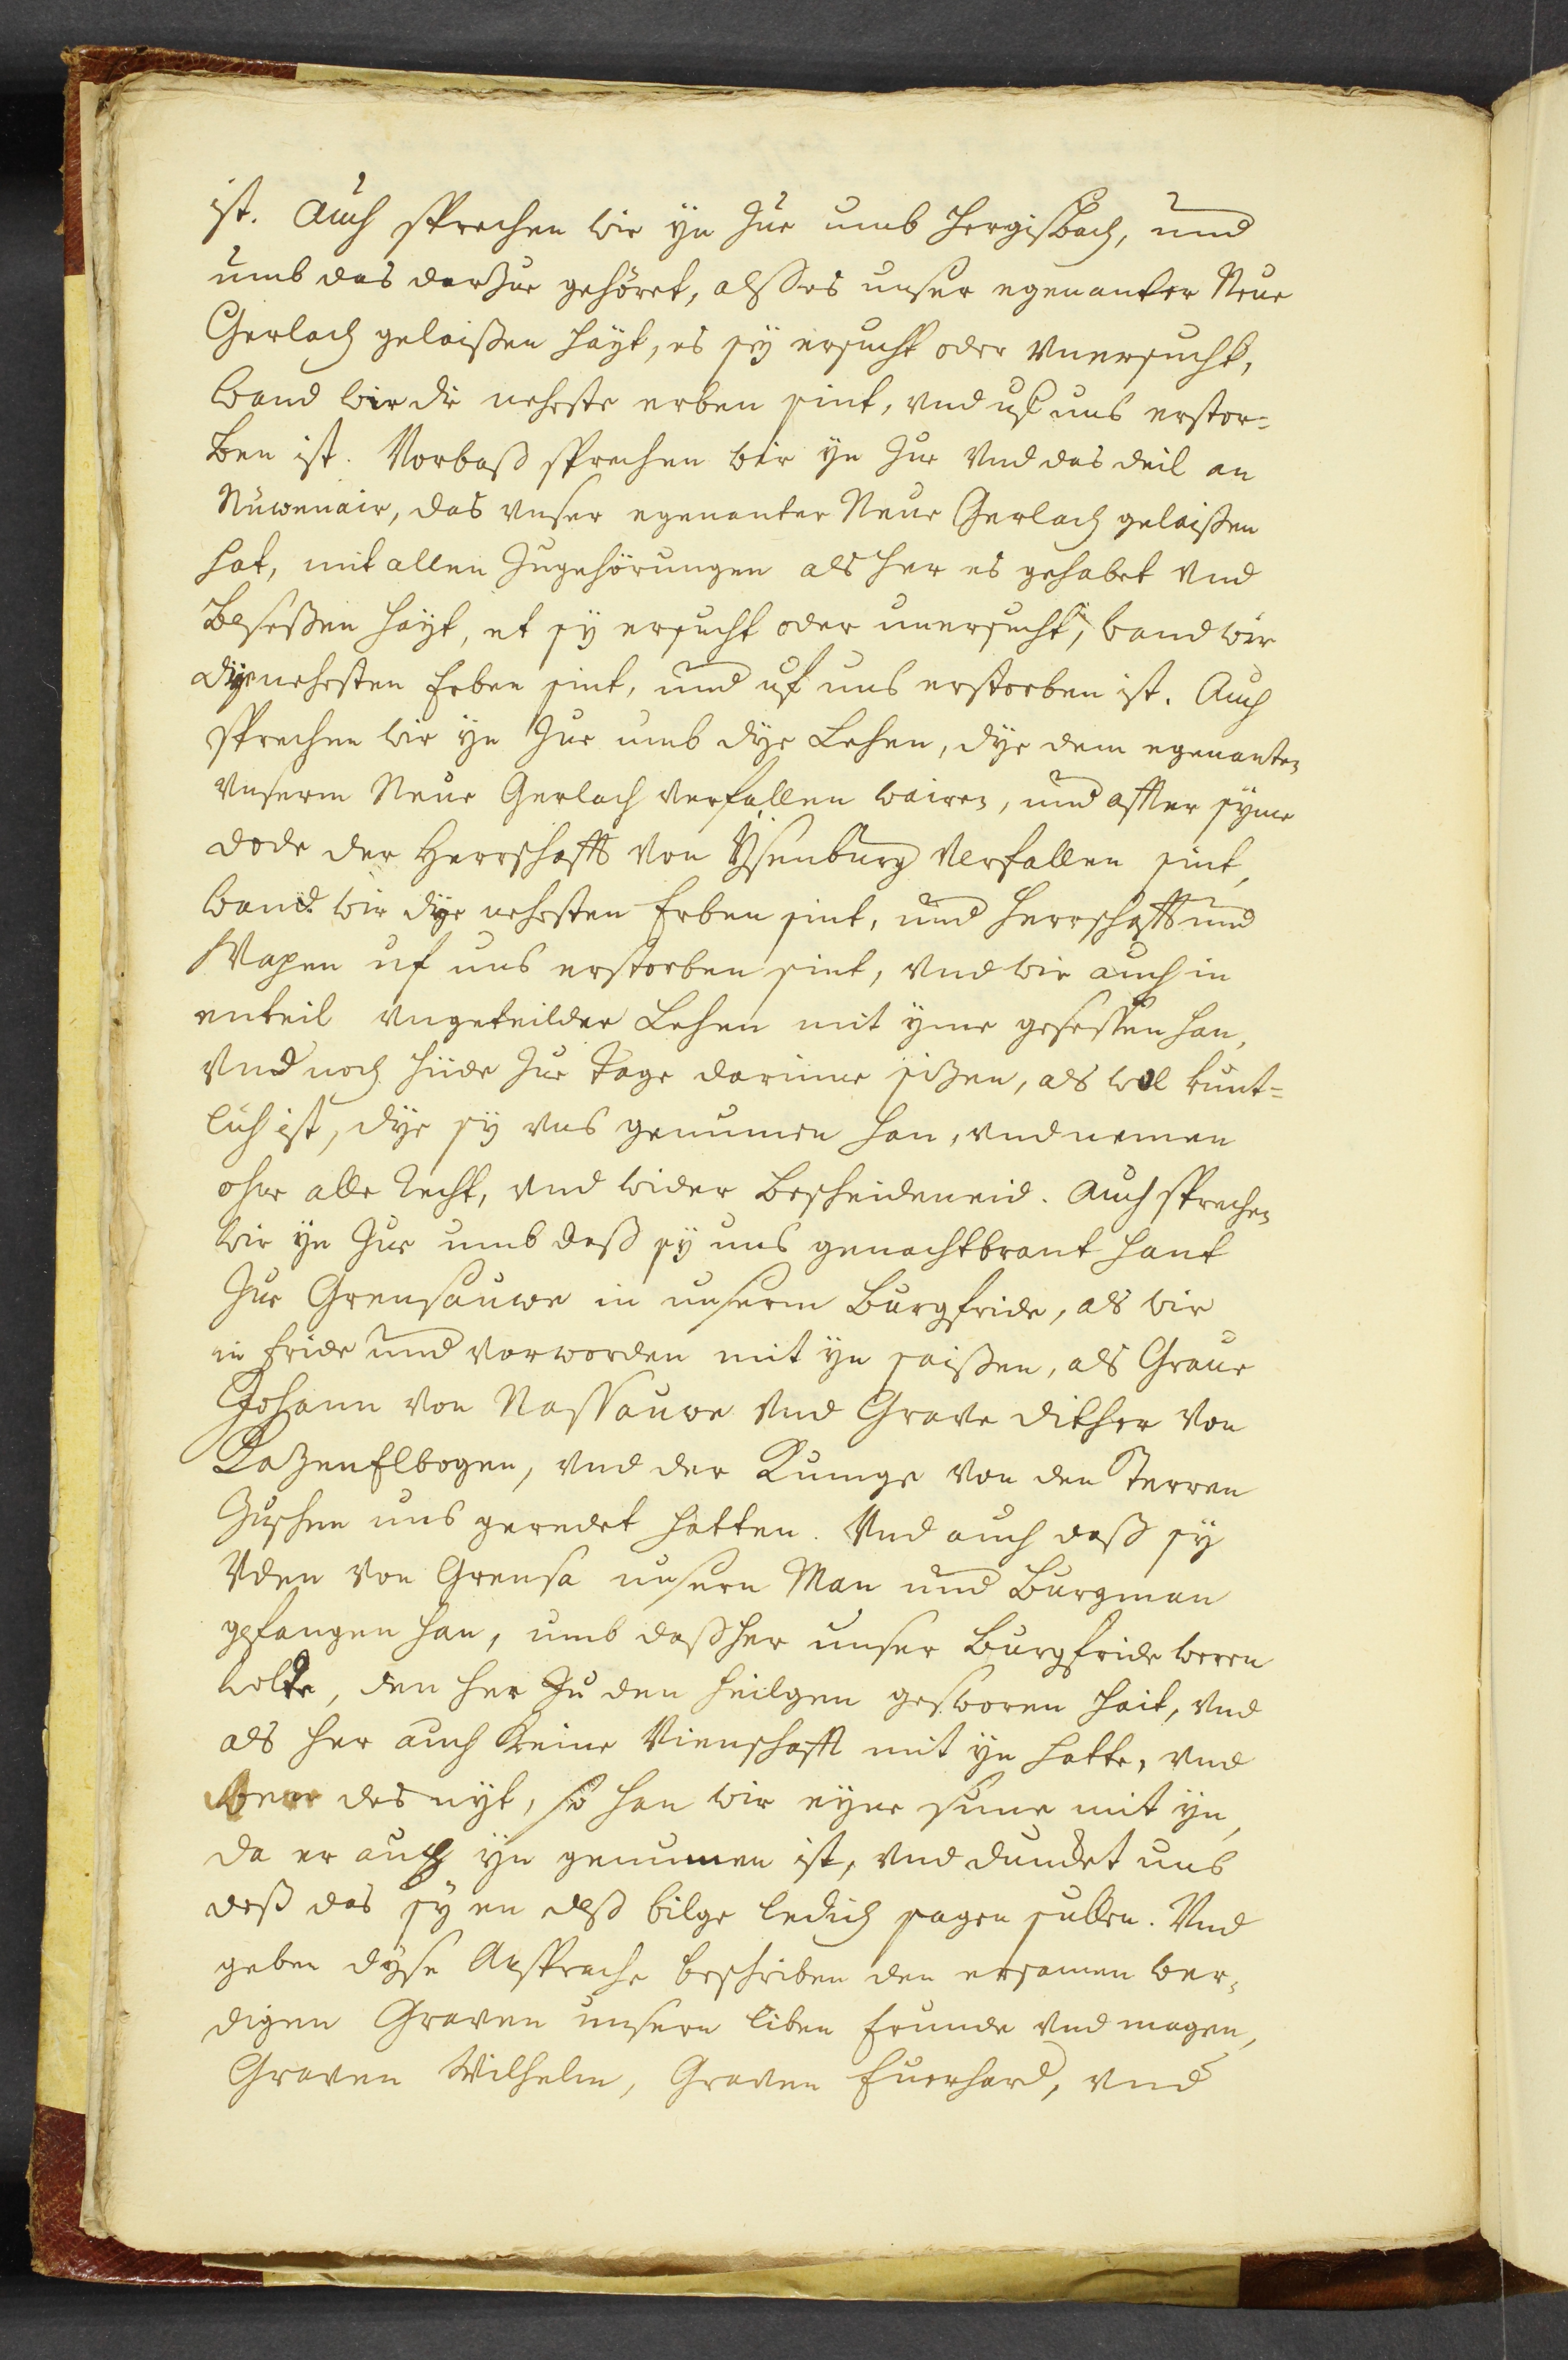 ist. Auch sprechen wir yn zue umb Hergisbach, und
umb das darzue gehöret, alss es unser egenanter Neue
Gerlach gelaißen hayt, es sy ersucht oder vnersucht,
wand wir die neheste erben sint, vnd uf uns erstor-
ben ist. Vorbaß sprechen wir yn zue vnd das deil an
Nüwenair, das vnser egenanter Neue Gerlach gelaißen
hat, mit allen Zugehörungen als her es gehabet vnd
beseßen hayt, et sy ersucht oder unersucht, wand wir
dye nehesten Erben sint, und uf uns erstorben ist. Auch
sprechen wir yn zue umb dye Lehen, dye dem egenanten
vnserm Neue Gerlach verfallen wairen, und affter syme
dode der Herrschafft von Ysenburg verfallen sint,
wand wir dye nehesten Erben sint, und Herrschafft und
Wapen uf uns erstorben sint, vnd wir auch in
enteil vngeteilder Lehen mit yme geseßen han,
vnd noch hüde zue tage darinne sizen, als wol kunt-
lich ist, dye sy vns genumen han, vnd nemen
ohne alle Recht, vnd wider bescheideneid. Auch sprechen
wir yn zue umb daß sy uns genachtbrant hant
zue Grensauwe in unserm Burgfride, als wir
in fride und vorworden mit yn saißen, als Graue
Johann von Nassauwe vnd Grave Dither von
Kazenelbogen, vnd der Kunige von den Herren
zuschen uns geredet hatten. Vnd auch daß sy
Vden von Grensa unsern Man und Burgman
gefangen han, umb daß her unser Burgfride weren
wolte, den her zu den heilgen gesworen hait, vnd
als her auch keine Vienschafft mit yn hatte, vnd
wer des nyt, so han wir eyne sune mit yn,
da er auch yn genumen ist, vnd dundet uns
deß das sy en deß bilge ledich sagen sullen. Vnd
geben dyse Ansprache beschriben den ersamen wer-
digen Graven unsern liben frunde vnd magen,
Graven Wilhelm, Graven Euerhard, vnd